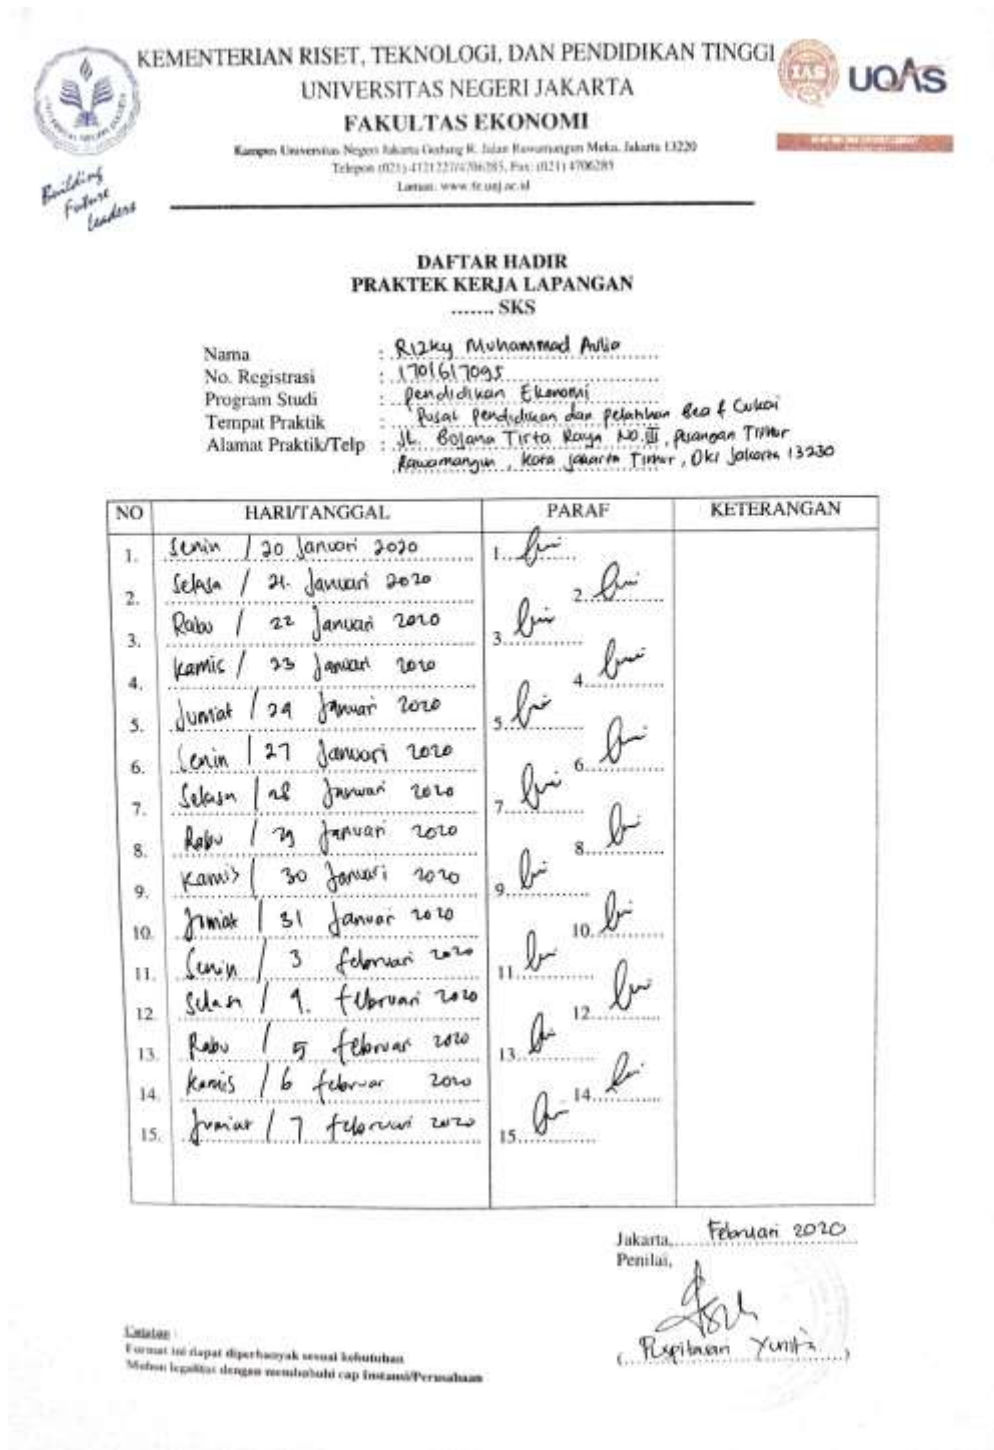 KEMENTERIAN RISET, TEKNOLOGI, DAN PENDIDIKAN TINGGI
UNIVERSITAS NEGERI JAKARTA
FAKULTAS EKONOMI
Kampus Universitas Negeri Jakarta Gedung R, Jalan Rawamangun Muka, Jakarta 13220
Telepon (021) 4721227/4706285, Fax: (021) 4706285
Laman: www.fe.unj.ac.id
Building
Future
Leaders
IAS
UQAS
DAFTAR HADIR
PRAKTEK KERJA LAPANGAN
....... SKS
Nama : Rizky Muhammad Aulia
No. Registrasi : 1701617095
Program Studi : Pendidikan Ekonomi
Tempat Praktik : Pusat Pendidikan dan Pelatihan Bea & Cukai
Alamat Praktik/Telp : JL. Bojana Tirta Raya No. III, Timur
Rawamangun, Kota Jakarta Timur, Dki Jakarta 13230
NO HARI/TANGGAL PARAF KETERANGAN
1. Senin / 20 Januari 2020 1.
2. Selasa / 21. Januari 2020 2.
3. Rabu / 22 Januari 2020 3.
4. Kamis / 23 Januari 2020 4.
5. Jumiat / 24 Januari 2020 5.
6. Senin / 27 Januari 2020 6.
7. Selasa / 28 Januari 2020 7.
8. Rabu / 29 Januari 2020 8.
9. Kamis / 30 Januari 2020 9.
10. Jumiat / 31 Januari 2020 10.
11. Senin / 3 februari 2020 11.
12. Selasa / 4. februari 2020 12.
13. Rabu / 5 februari 2020 13.
14. Kamis / 6 februar 2020 14.
15. Jumiat / 7 februari 2020 15.
Jakarta, Februari 2020
Penilai,
( Puspitasari Yunita )
Catatan :
Format ini dapat diperbanyak sesuai kebutuhan
Mohon legalitas dengan membubuhi cap Instansi/Perusahaan